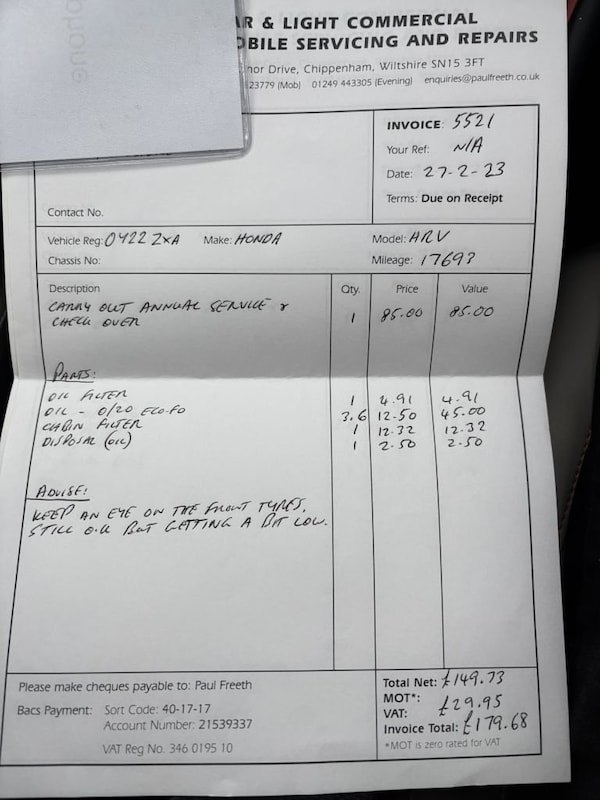 R & LIGHT COMMERCIAL
OBILE SERVICING AND REPAIRS
nor Drive, Chippenham, Wiltshire SN15 3FT
23779 (Mob) 01249 443305 (Evening) enquiries@paulfreeth.co.uk
phone
INVOICE: 5521
Your Ref: N/A
Date: 27-2-23
Terms: Due on Receipt
Contact No.
Vehicle Reg: OY22 ZXA Make: HONDA Model: HRV
Chassis No: Mileage: 17693
Description Qty. Price Value
CARRY OUT ANNUAL SERVICE &
CHECK OVER 1 85.00 85.00
PARTS:
OIL FILTER 1 4.91 4.91
OIL - 0/20 ECO-FO 3.6 12-50 45.00
CABIN FILTER 1 12.32 12.32
DISPOSAL (OIL) 1 2.50 2-50
ADVISE:
KEEP AN EYE ON THE FRONT TYRES,
STILL O.K BUT GETTING A BIT LOW.
Please make cheques payable to: Paul Freeth
Bacs Payment: Sort Code: 40-17-17
Account Number: 21539337
VAT Reg No. 346 0195 10
Total Net: £149.73
MOT*:
VAT: £29.95
Invoice Total: £179.68
*MOT is zero rated for VAT